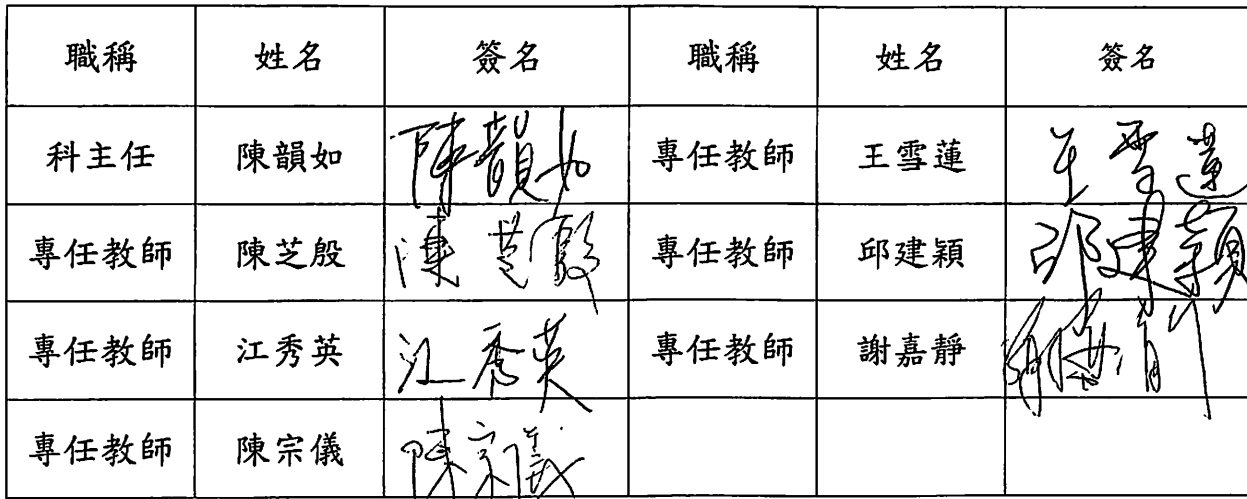 職稱 姓名 簽名 職稱 姓名 簽名
科主任 陳韻如 陳韻如 專任教師 王雪蓮 王雪蓮
專任教師 陳芝殷 陳芝殷 專任教師 邱建穎 邱建穎
專任教師 江秀英 江秀英 專任教師 謝嘉靜
專任教師 陳宗儀 陳宗儀